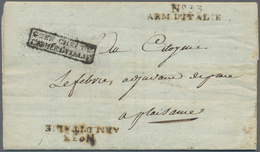 No. 33
ARM. D'ITALIE
GEN. CHEF
L'ARMÉE D'ITALIE
Au Citoyen
Lefebvre, adjudant de place
a plaisance
No. 33
ARM. D'ITALIE